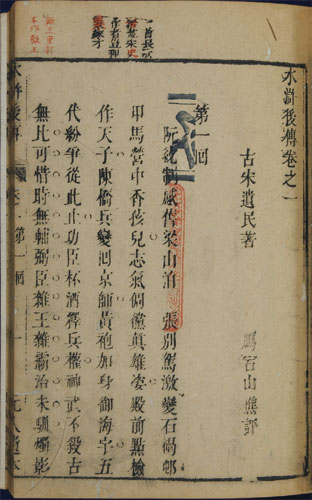 水滸後傳卷之一
古宋遺民著
鴈宕山樵評
第一回
阮統制感舊梁山泊　張別駕激變石碣邨
甲馬營中香孩兒志氣倜儻真雄姿殿前點檢
作天子陳橋兵變回京師黃袍加身御海宇五
代紛爭從此止功臣杯酒釋兵權神武不殺古
無比可惜時無輔弼臣雜王雜霸治未馴燭影
水滸後傳
卷一
第一回
元人遺本